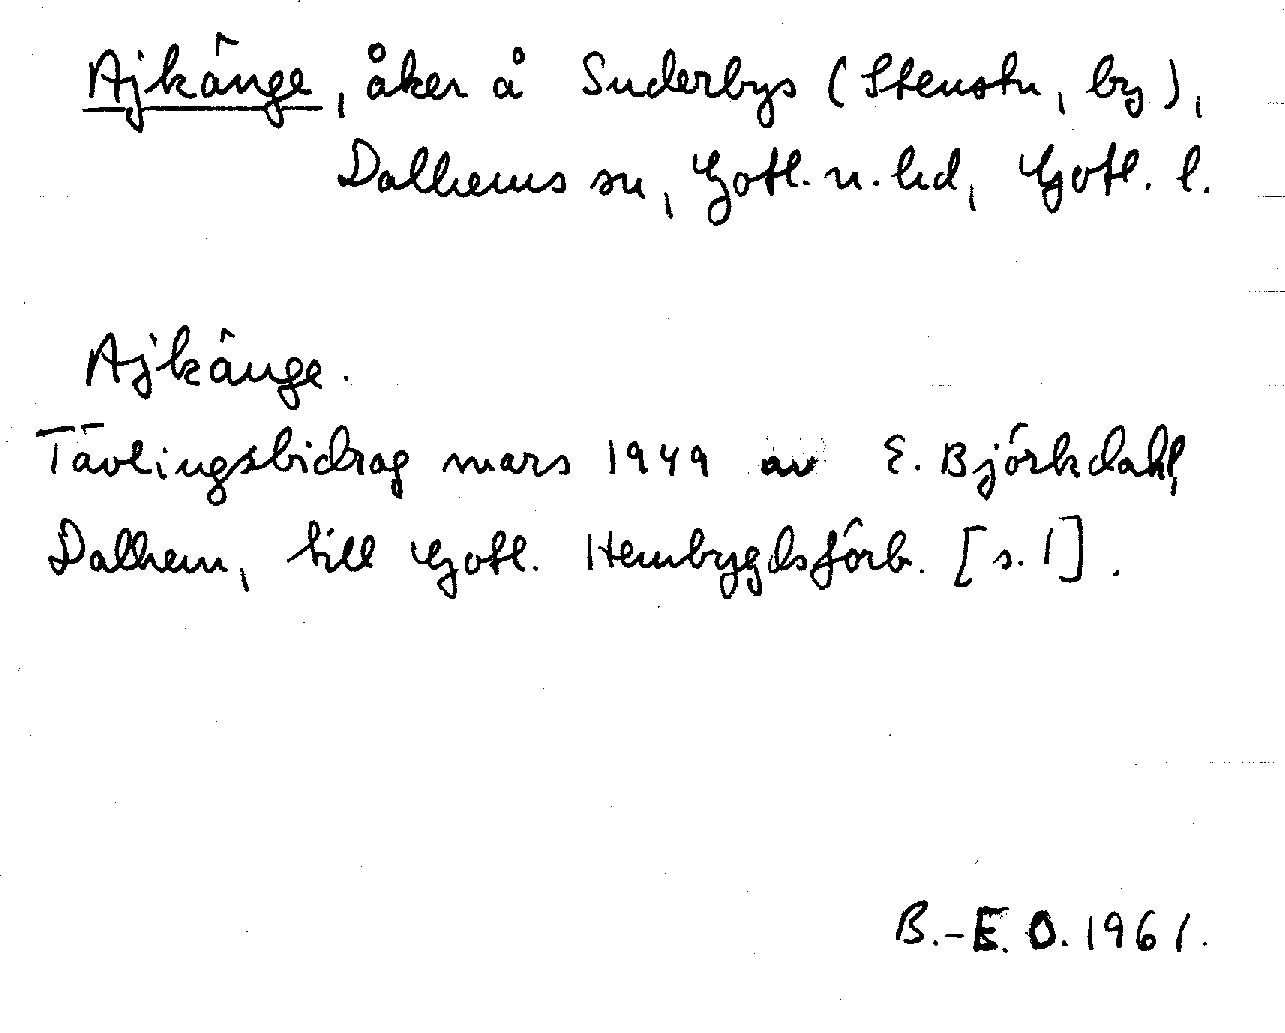 Ajkänge, åker å Suderbys (Stenstu, by),
Dalhems sn, Gotl. n. hd, Gotl. l.
Ajkänge.
Tävlingsbidrag mars 1949 av E. Björkdahl,
Dalhem, till Gotl. Hembygdsförb. [s. 1].
B.-E. O. 1961.